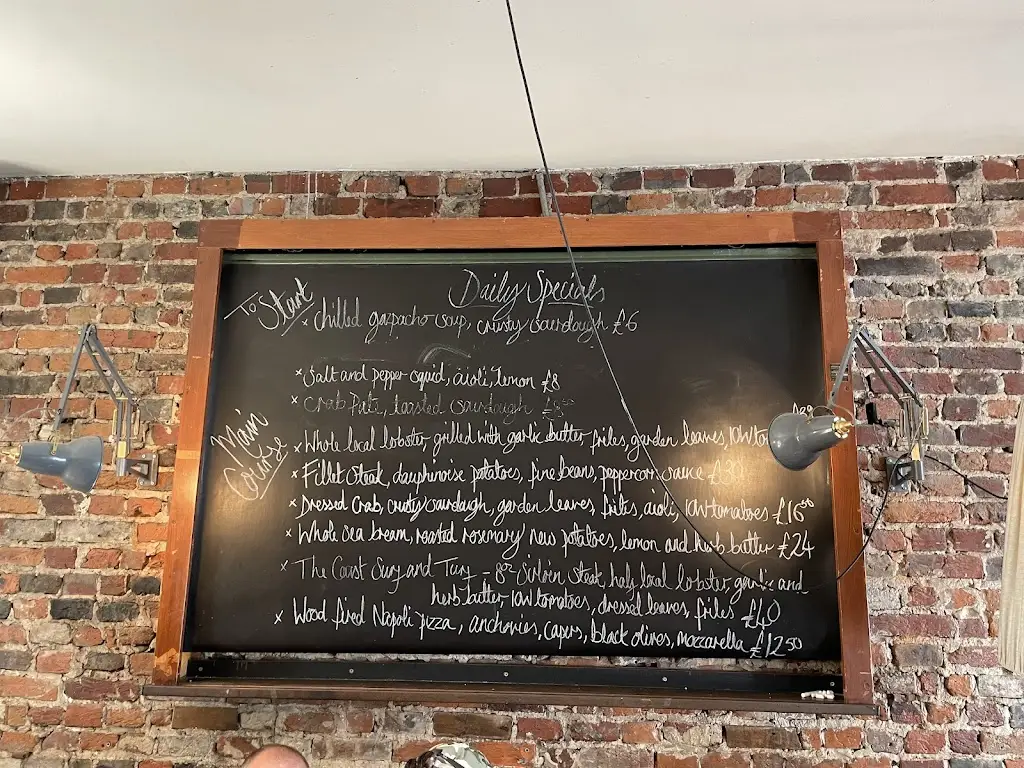 Daily Specials
To Start
× Chilled gazpacho soup, crusty sourdough £6
× Salt and pepper squid, aioli, lemon £8
× Crab Pate, toasted sourdough
Main Course
× Whole local lobster, grilled with garlic butter, frites, garden leaves, IOW
× Fillet Steak, dauphinoise potatoes, fine beans, peppercorn sauce £30
× Dressed Crab, crusty sourdough, garden leaves, frites, aioli, IOW tomatoes £16⁵⁰
× Whole sea bream, roasted rosemary new potatoes, lemon and herb butter £24
× The Coast Surf and Turf - 8oz Sirloin Steak, half local lobster, garlic and
herb butter, IOW tomatoes, dressed leaves, frites £40
× Wood fired Napoli pizza, anchovies, capers, black olives, mozzarella £12⁵⁰